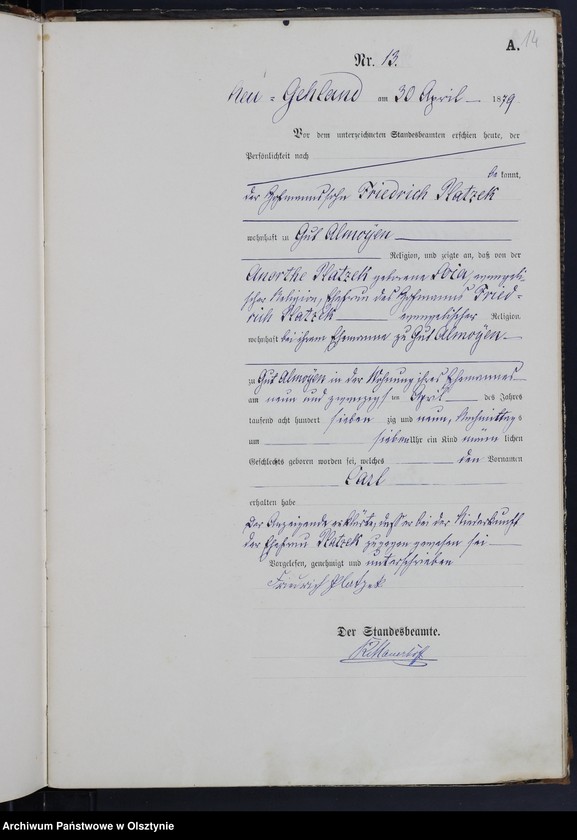 A. 14
Nr. 13.
Neu-Gehland am 30 April 1879
Vor dem unterzeichneten Standesbeamten erschien heute, der
Persönlichkeit nach
be kannt,
der Hofmannssohn Friedrich Platzek
wohnhaft zu Gut Almoyen
Religion, und zeigte an, daß von der
Anorthe Platzek geborene evangeli
scher Religion, Ehefrau des Hofmanns Fried=
rich Platzek evangelischer Religion
wohnhaft bei ihrem Ehemanne zu Gut Almoyen
zu Gut Almoyen in der Wohnung ihres Ehemannes
am neun und zwanzigsten April des Jahres
tausend acht hundert sieben zig und neun, Nachmittags
um sieben Uhr ein Kind männ lichen
Geschlechts geboren worden sei, welches den Vornamen
Carl
erhalten habe
Der Anzeigende erklärte, daß er bei der Niederkunft
der Ehefrau Platzek zugegen gewesen sei
Vorgelesen, genehmigt und unterschrieben
Friedrich Platzek
Der Standesbeamte.
Archiwum Państwowe w Olsztynie